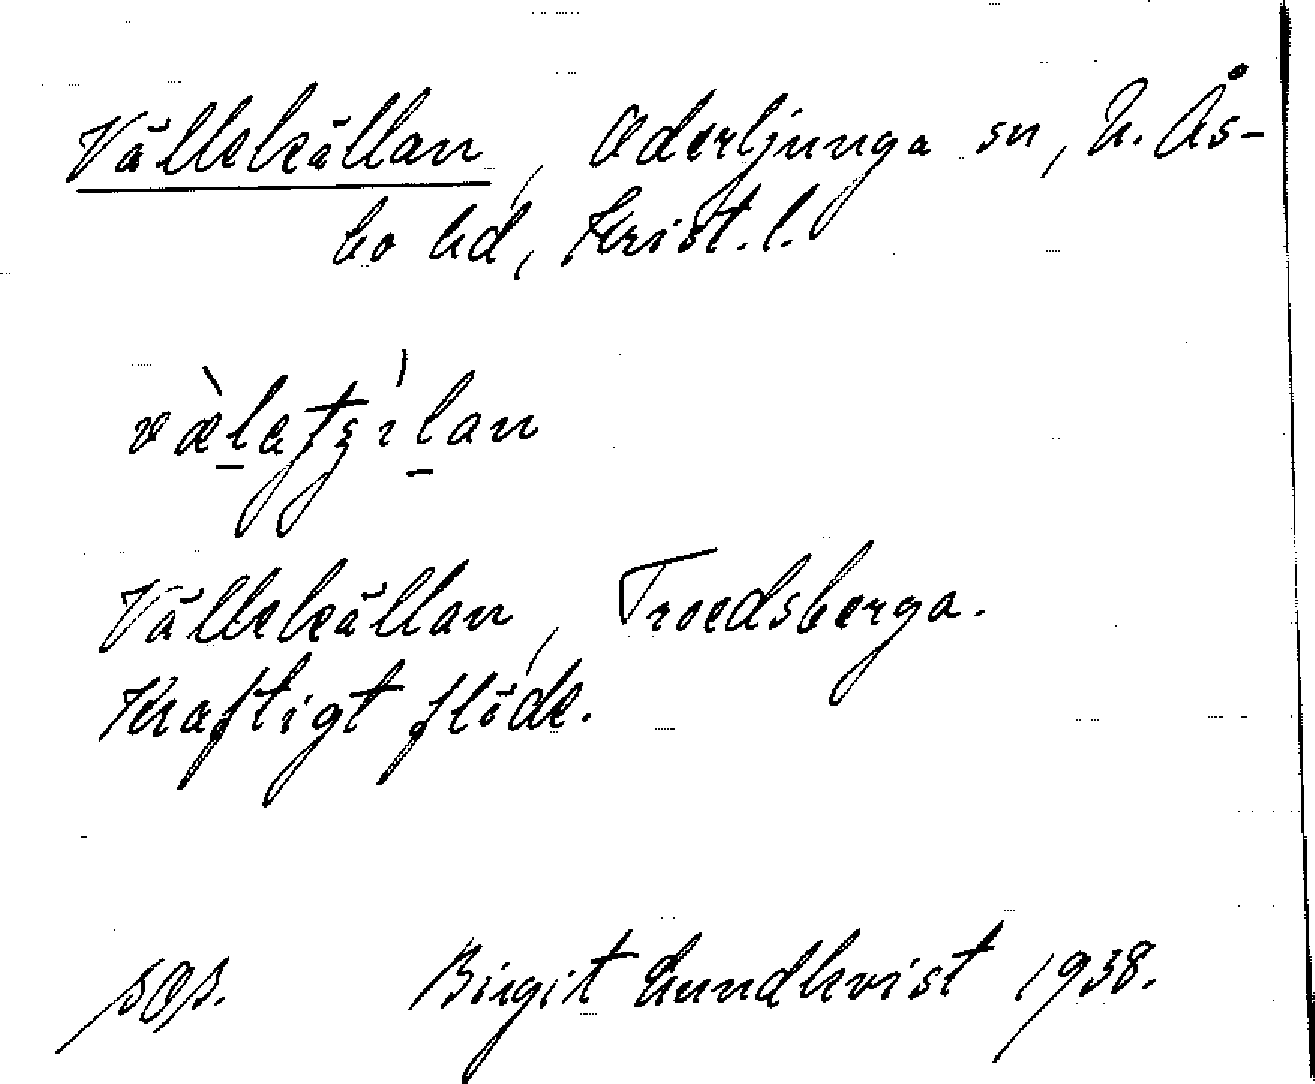 Vällekällan, Oderljunga sn, N. Ås-
bo hd, Krist. l.
Vällekällan, Troedsberga.
Kraftigt flöde.
Birgit Lundkvist 1938.